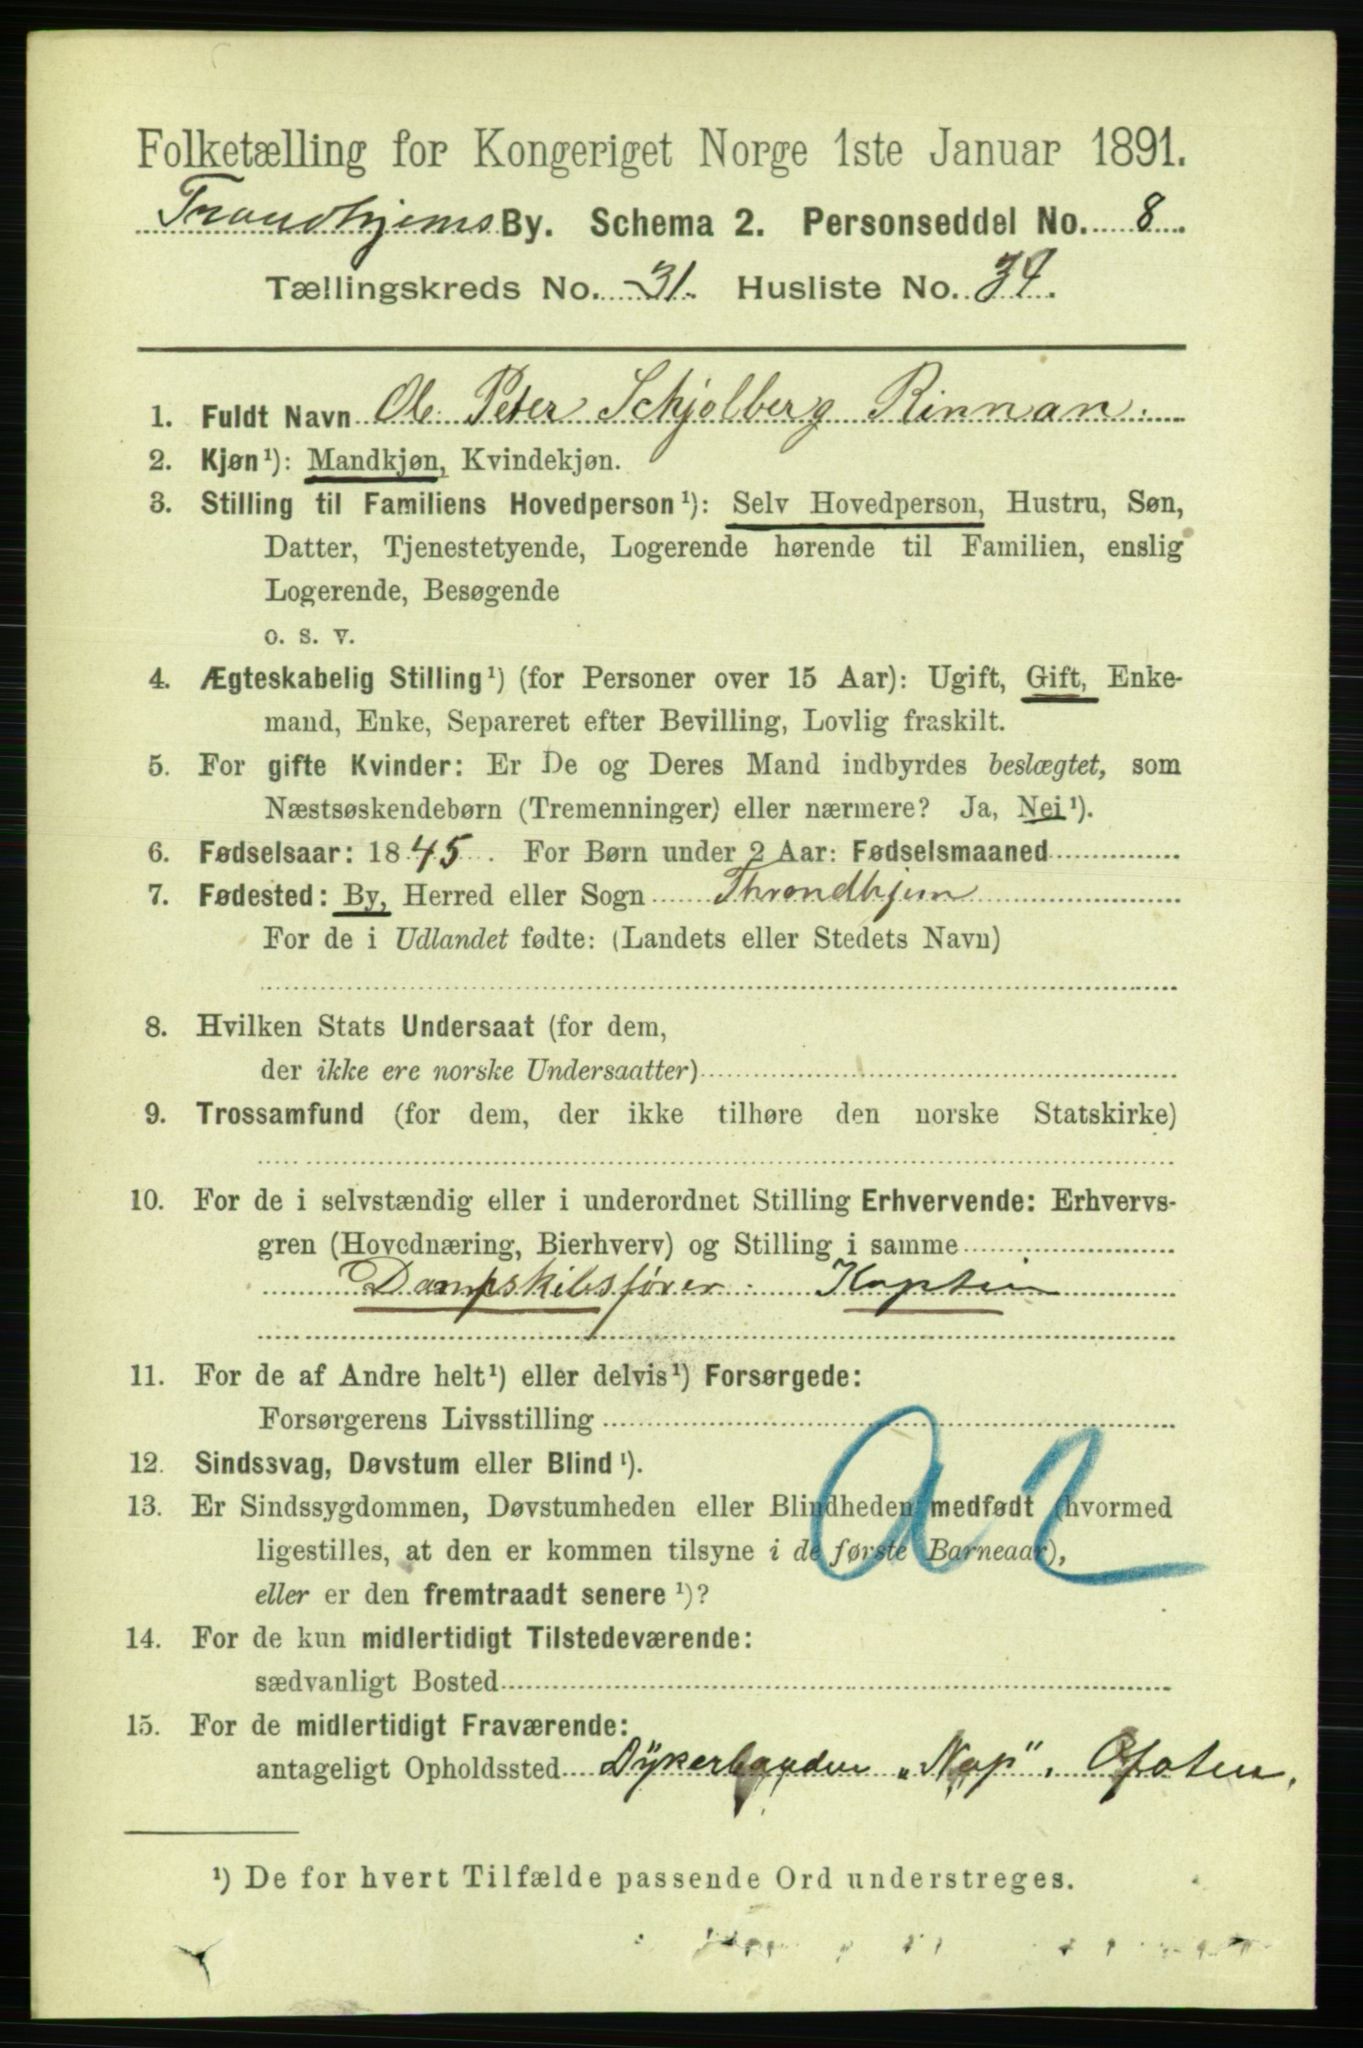 Folketælling for Kongeriget Norge 1ste Januar 1891.
Trondhjems By. Schema 2. Personseddel No. 8.
Tællingskreds No. 31. Husliste No. 34.
1. Fuldt Navn Ole Peter Schjølberg Rinnan.
2. Kjøn¹): Mandkjøn, Kvindekjøn.
3. Stilling til Familiens Hovedperson¹): Selv Hovedperson, Hustru, Søn,
Datter, Tjenestetyende, Logerende hørende til Familien, enslig
Logerende, Besøgende
o. s. v.
4. Ægteskabelig Stilling¹) (for Personer over 15 Aar): Ugift, Gift, Enke-
mand, Enke, Separeret efter Bevilling, Lovlig fraskilt.
5. For gifte Kvinder: Er De og Deres Mand indbyrdes beslægtet, som
Næstsøskendebørn (Tremenninger) eller nærmere? Ja, Nei¹).
6. Fødselsaar: 1845. For Børn under 2 Aar: Fødselsmaaned
7. Fødested: By, Herred eller Sogn Throndhjem
For de i Udlandet fødte: (Landets eller Stedets Navn)
8. Hvilken Stats Undersaat (for dem,
der ikke ere norske Undersaatter)
9. Trossamfund (for dem, der ikke tilhøre den norske Statskirke)
10. For de i selvstændig eller i underordnet Stilling Erhvervende: Erhvervs-
gren (Hovednæring, Bierhverv) og Stilling i samme
Dampskibsfører. Kaptein
11. For de af Andre helt¹) eller delvis¹) Forsørgede:
Forsørgerens Livsstilling
12. Sindssvag, Døvstum eller Blind¹).
13. Er Sindssygdommen, Døvstumheden eller Blindheden medfødt (hvormed
ligestilles, at den er kommen tilsyne i de første Barneaar),
eller er den fremtraadt senere¹)?
a 2
14. For de kun midlertidigt Tilstedeværende:
sædvanligt Bosted
15. For de midlertidigt Fraværende:
antageligt Opholdssted „Nap", Ofoten.
¹) De for hvert Tilfælde passende Ord understreges.